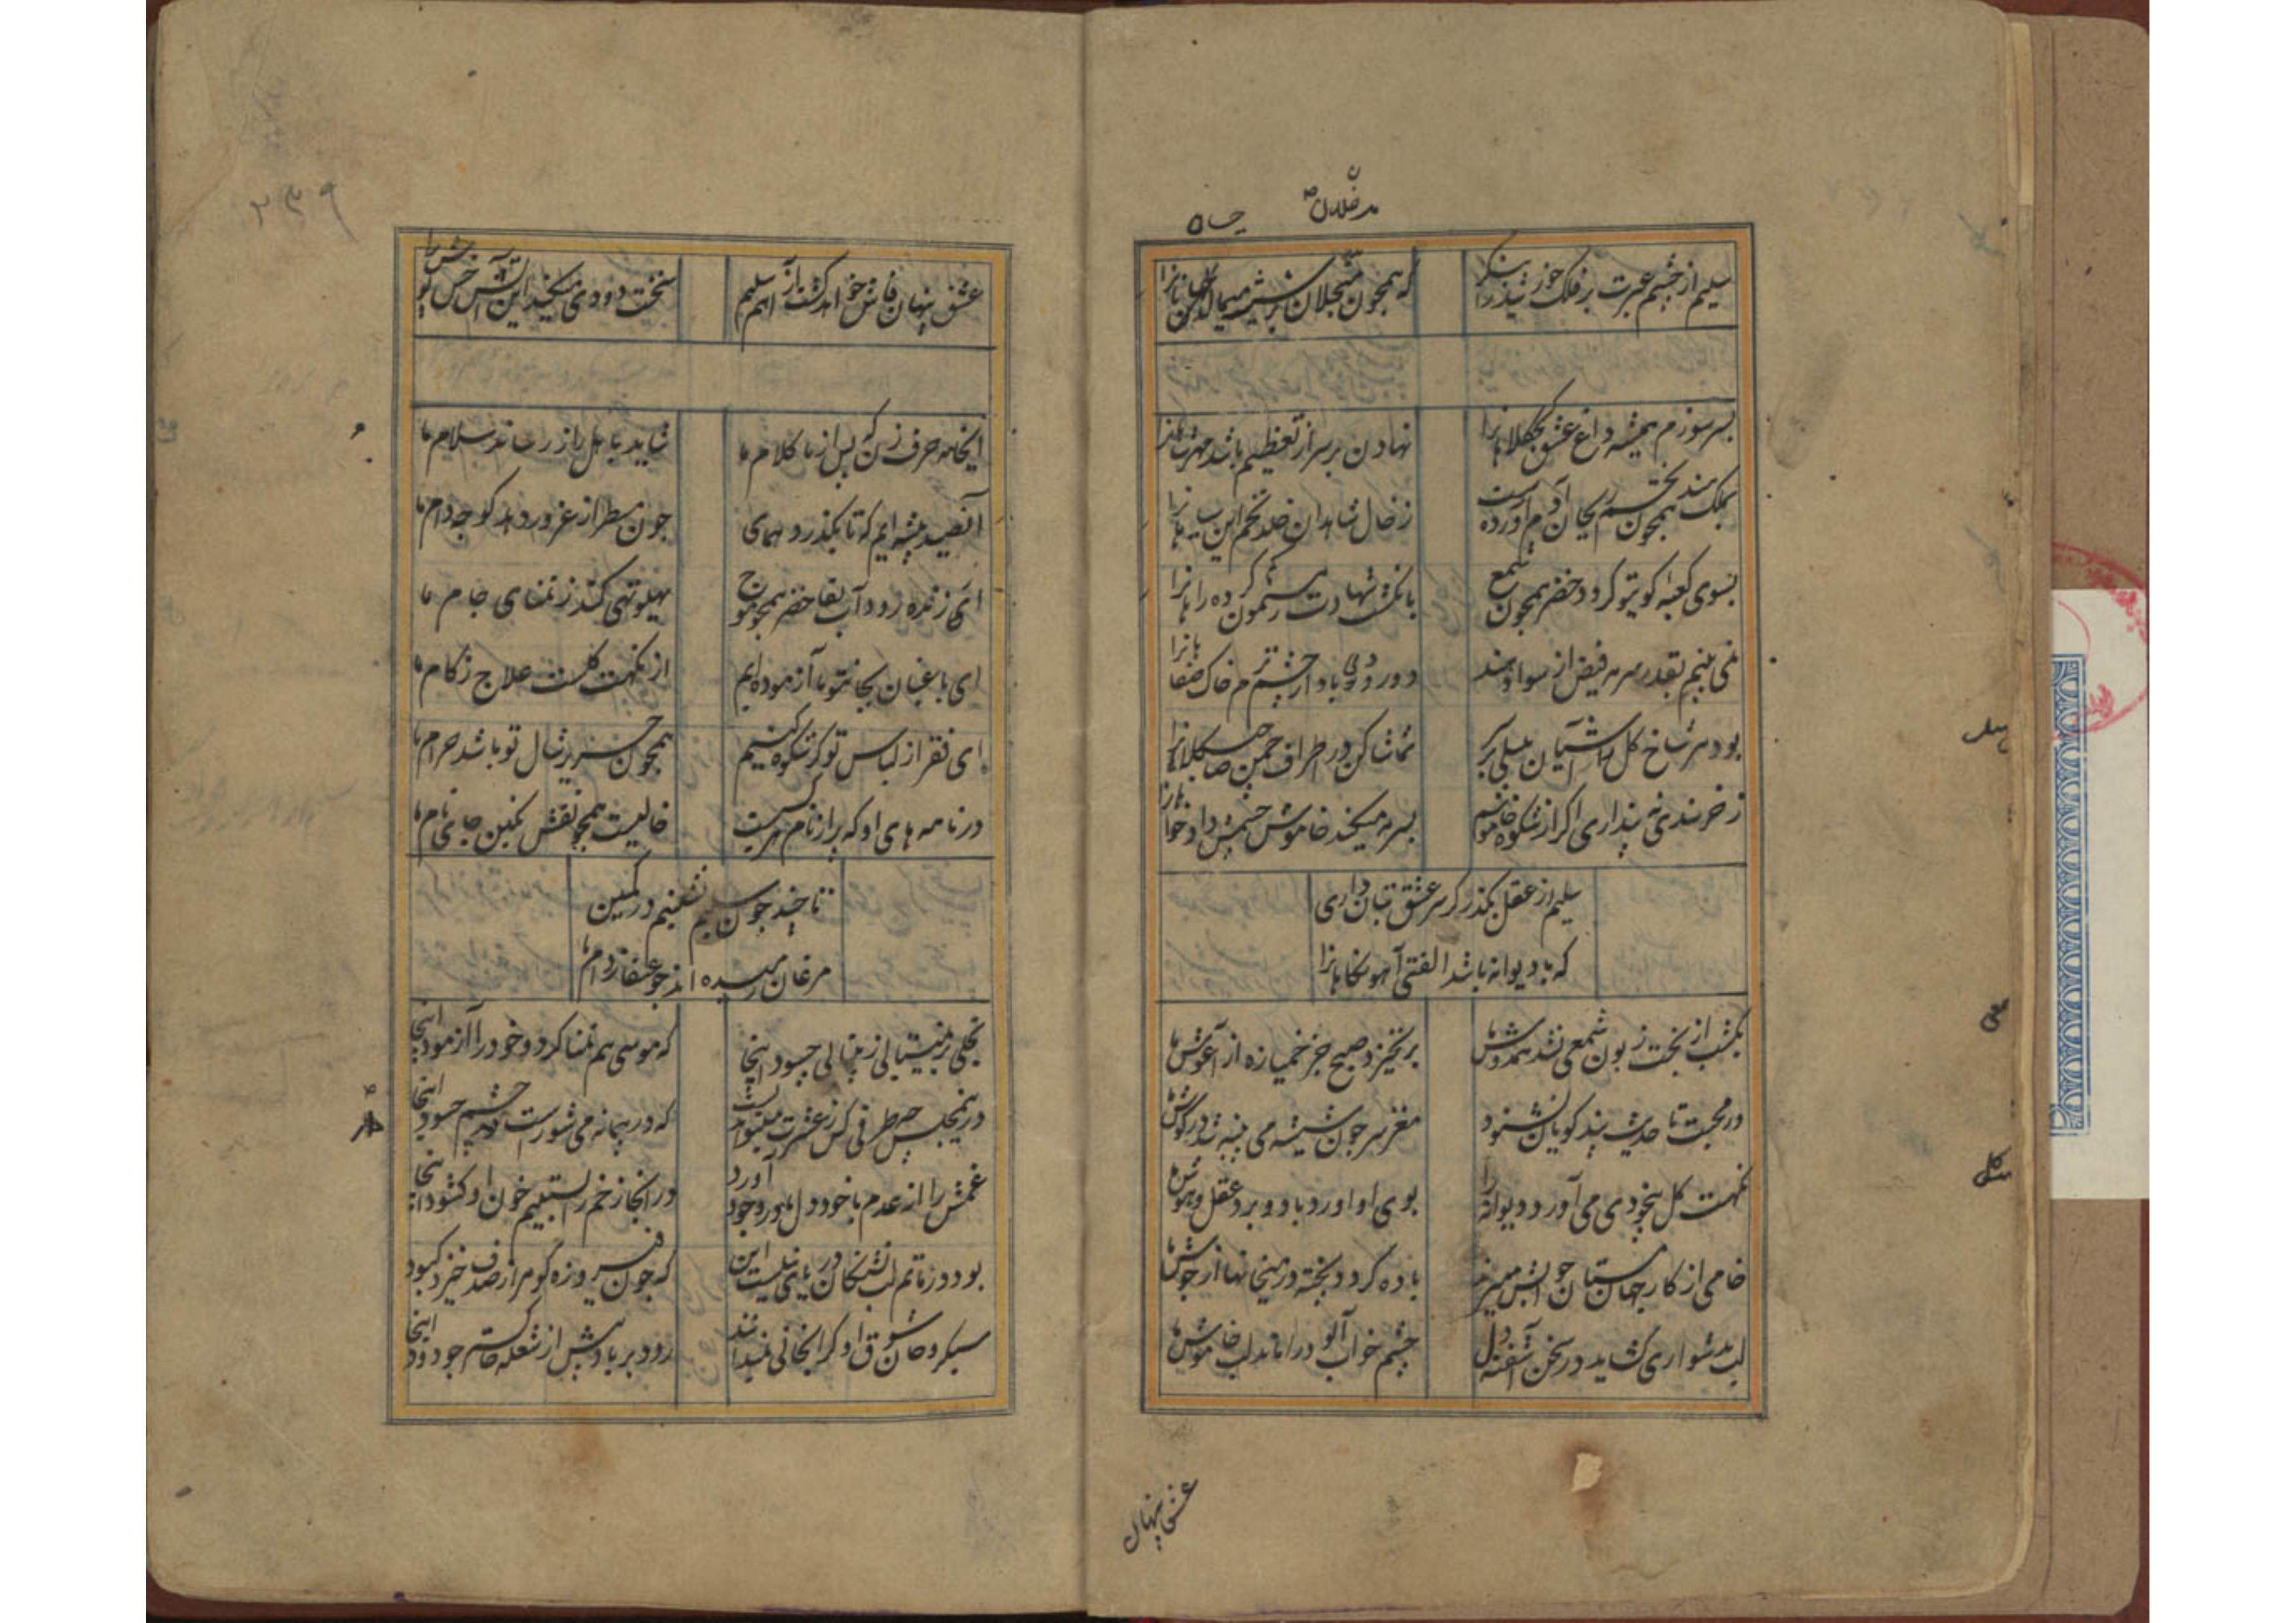 سلیم از چشم عبرت بر فلک خورشید را بنگر
که همچون صیقلان
بسر سوزم همیشه داغ عشق کجکلاهانرا
نهادن بر سر از تعظیم باشد مهر شاهانرا
بملک هند بختم همچون ریحان آورده
ز خال شاهدان شد تخم این
بسوی کعبه کوی تو گردد خضر همچون شمع
بانگشت شهادت رهنمون کم کرده راهانرا
نمی بینم بقدر سرمه فیض از سواد هند
دور باد از چشم ترم خاک صفاهانرا
بود بر شاخ گل آشیان بلبلی بر سر
تماشا کن در اطراف چمن صاحب کلاهانرا
ز خرسندی نه پنداری اگر از شکوه خاموشم
بسرمه میکند خاموش چشمش داد خواهانرا
سلیم از عقل بگذر گر سر عشق بتان داری
که با دیوانه باشد الفتی آهو نگاهانرا
یکشب از بخت زبون شمعی نشد همدوش ما
بر نخیزد صبح جز خمیازه از آغوش ما
در محبت تا حدیث پند گویان نشنود
مغز سر چون شیشه می پنبه شد در گوش ما
نکهت گل بیخودی می آورد دیوانه را
بوی او آورد باد و برد عقل و هوش ما
خامی از کار جهان مستان جوابش میبرند
باده گردد پخته در میخانها از جوش ما
لب بدشواری گشاید در سخن آشفته دل
چشم خواب آلود را ماند لب خاموش ما
عشق پنهان
۲۳۹
عشق پنهان فاش خواهد گشت از آهم سلیم
سخت دودی میکند این آتش خس پوش را
ای خامه حرف زن که پس از ما کلام ما
شاید باهل راز رساند سلام ما
آنصید پیشه ایم که تا بگذرد همای
چون مسطر از غرور دهد کوچه دام ما
آئی ز نزد رود آب بقا خضر همچو موج
پهلو تهی کند ز تمنای جام ما
ای باغبان بجان تو ما آزموده ایم
از نکهت گلست علاج زکام ما
ای فقر از لباس تو گر شکوه کنیم
همچون حریر شال تو باشد حرام ما
در نامه های او که پر از نام هر کسیست
خالیست همچو نقش نگین جای نام ما
تا چند چون سلیم نشینیم در کمین
مرغان رمیده اند چو عنقا ز دام ما
تجلی بر نمیتابی ز بیتابی چه سود اینجا
که موسی هم تمنا کرد و خود را آزمود اینجا
درینمجلس چه طرفی کس ز عشرت میتواند بست
که در پیمانه می شورست چشم حسود اینجا
غمش را از عدم با خود دل ما در وجود آورد
در آنجا زخم را بستیم خون او گشود اینجا
بود روز ماتم لب تشنگان دریای نیلست این
که چون فیروزه گوهر از صدف خیزد کبود اینجا
سبکروحان شوق او گرانجانی نمیدانند
رود بر باد پیش از شعله خاکستر چو دود اینجا